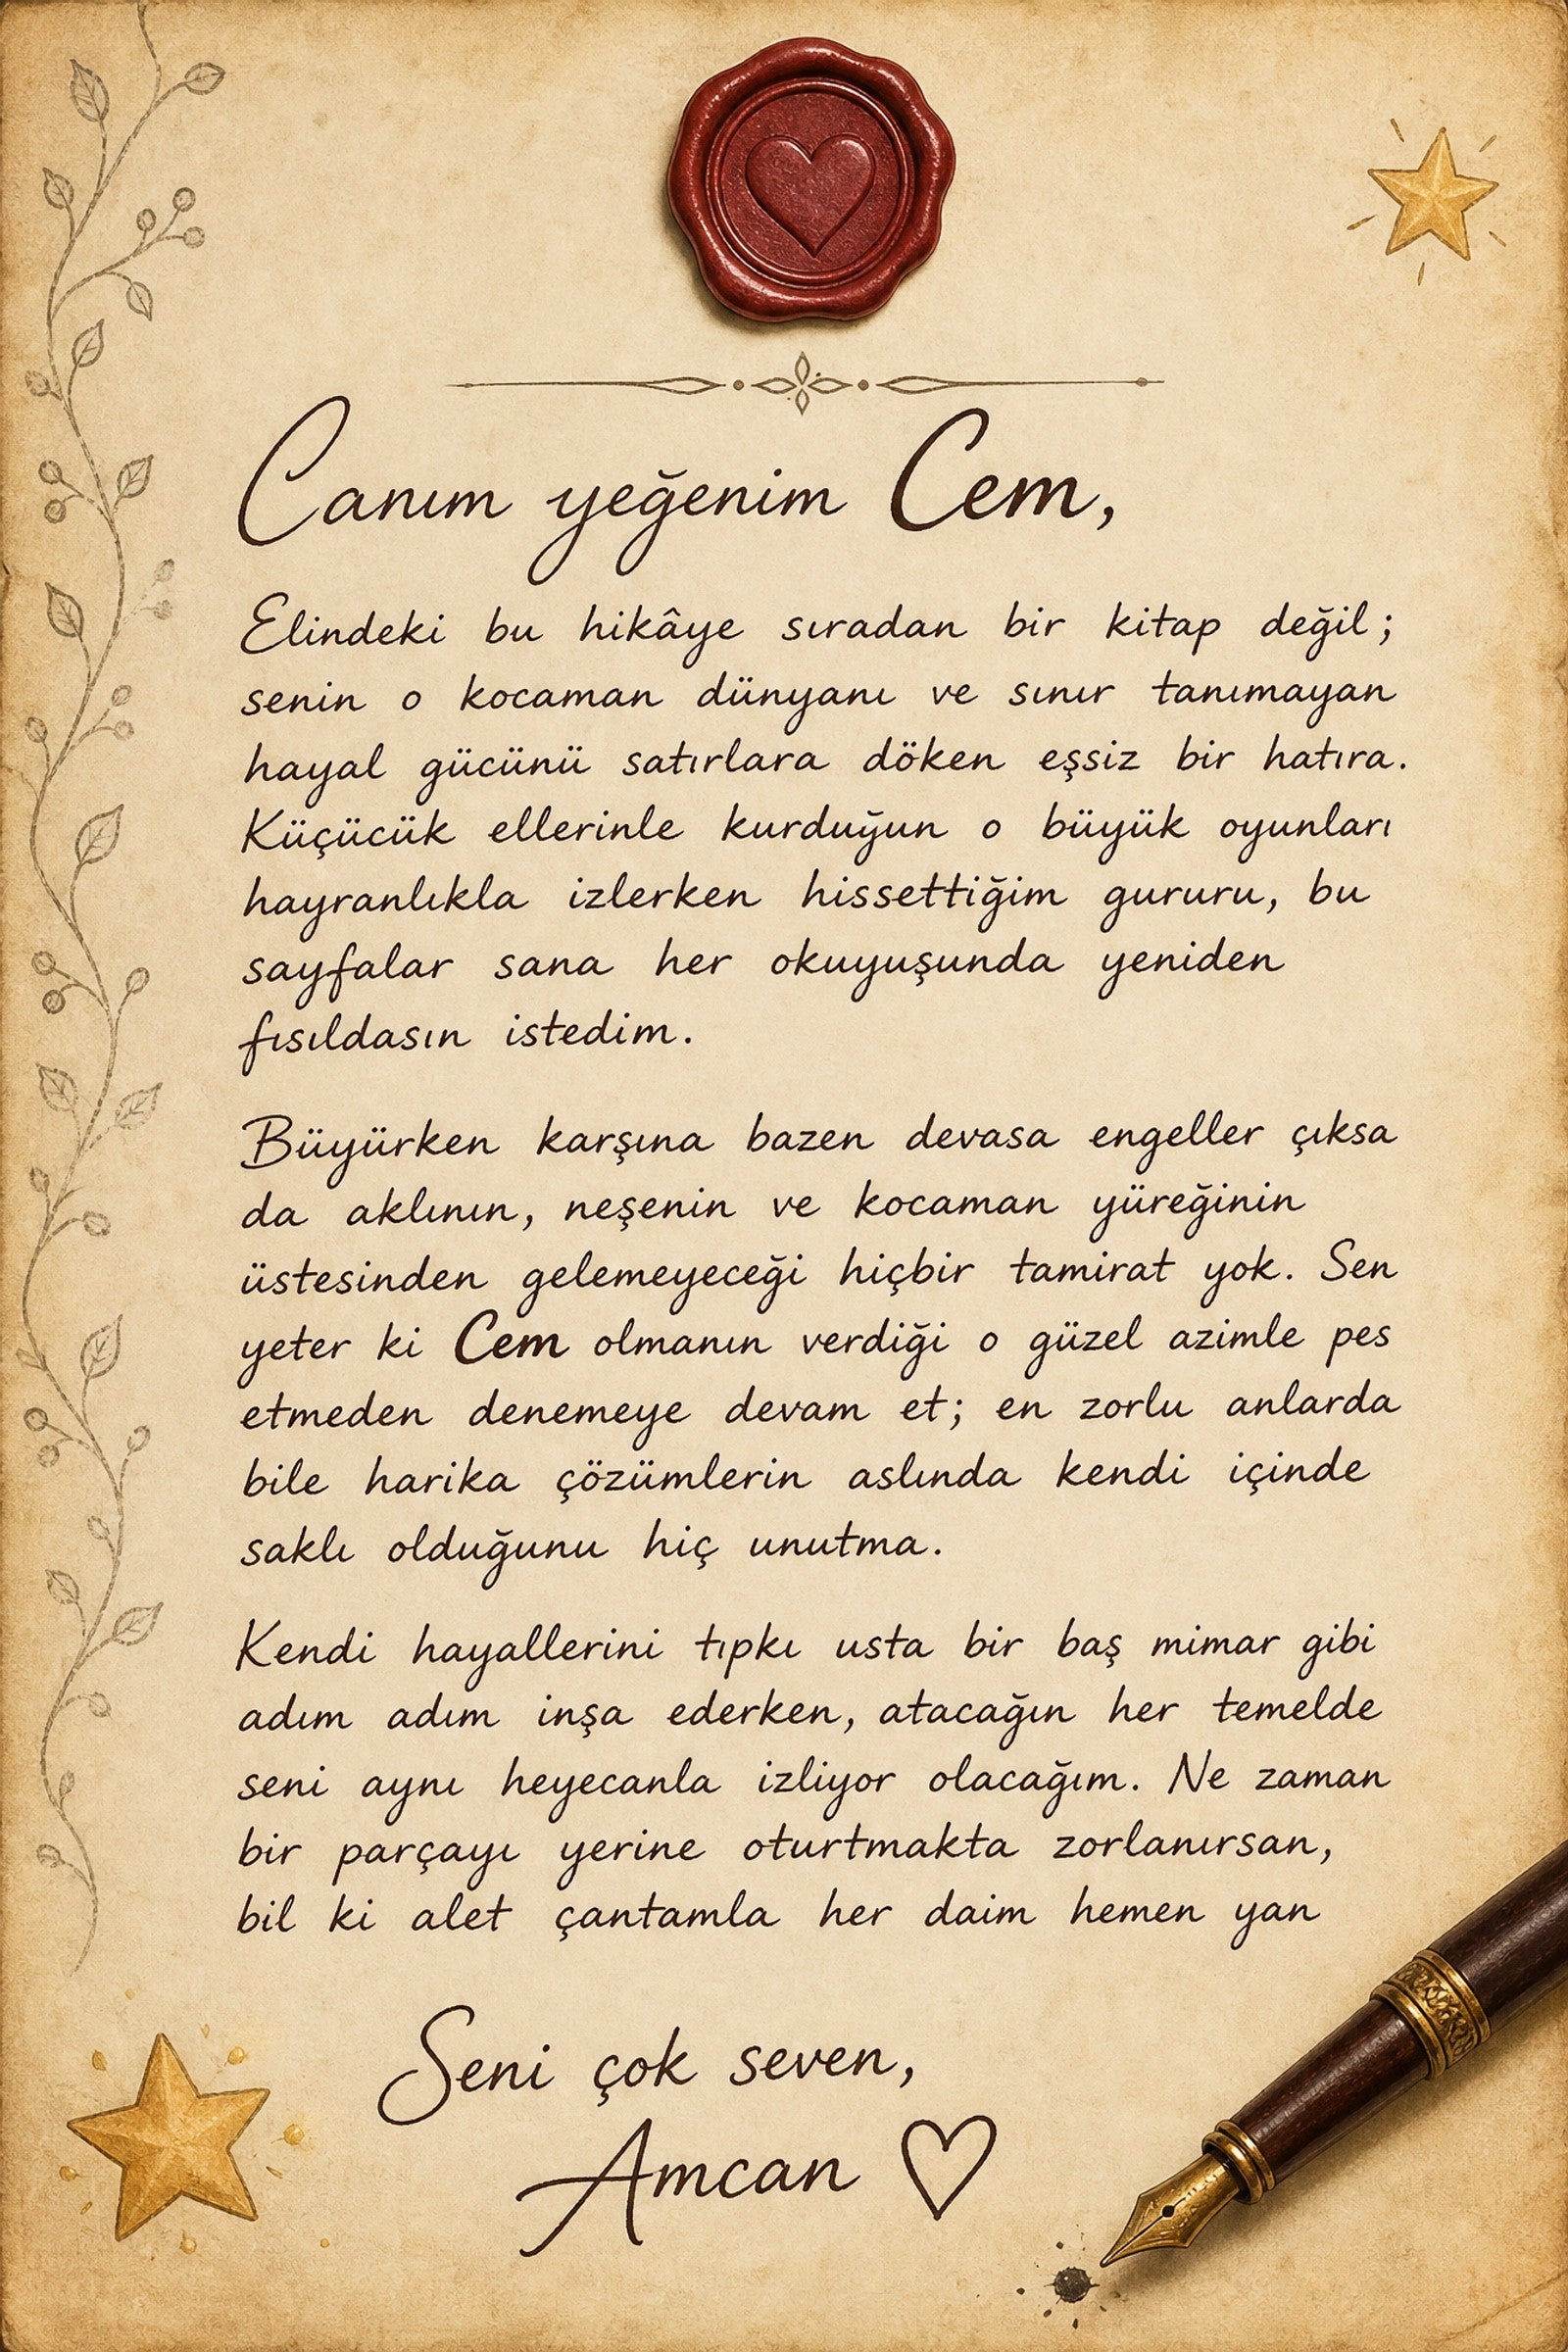 Canım yeğenim Cem,
Elindeki bu hikâye sıradan bir kitap değil;
senin o kocaman dünyanı ve sınır tanımayan
hayal gücünü satırlara döken eşsiz bir hatıra.
Küçücük ellerinle kurduğun o büyük oyunları
hayranlıkla izlerken hissettiğim gururu, bu
sayfalar sana her okuyuşunda yeniden
fısıldasın istedim.
Büyürken karşına bazen devasa engeller çıksa
da aklının, neşenin ve kocaman yüreğinin
üstesinden gelemeyeceği hiçbir tamirat yok. Sen
yeter ki Cem olmanın verdiği o güzel azimle pes
etmeden denemeye devam et; en zorlu anlarda
bile harika çözümlerin aslında kendi içinde
saklı olduğunu hiç unutma.
Kendi hayallerini tıpkı usta bir baş mimar gibi
adım adım inşa ederken, atacağın her temelde
seni aynı heyecanla izliyor olacağım. Ne zaman
bir parçayı yerine oturtmakta zorlanırsan,
bil ki alet çantamla her daim hemen yan
Seni çok seven,
Amcan